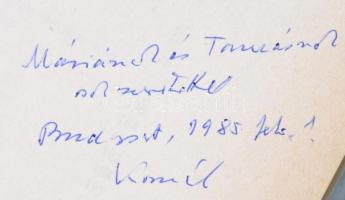 Máriának és Tamásnak
sok szeretettel
Budapest, 1985 febr. 1.
Kornél